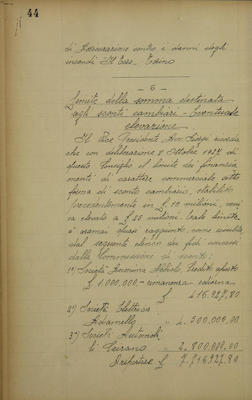 44
di Assicurazione contro i danni degli
incendi Torino
— 6 —
Limite della somma destinata
agli sconti cambiari - Eventuale
elevazione
Il Vice Presidente Avv.
che con deliberazione 8 Ottobre 1927 di
questo Consiglio il limite dei finanzia
menti di carattere commerciale sotto
forma di sconto cambiario, stabilito
precedentemente in £ 10 milioni, veni
va elevato a £ 20 milioni. Tale limite
è oramai quasi raggiunto, come risulta
dal seguente elenco dei fidi concessi
dalla Commissione di sconto:
1°) Società Anonima
£ 1.000.000,- rimanenza odierna
£ 416.927,80
2°) Società Elettrica
Adamello " 4.500.000,00
3°) Società Automobili
" 2.800.000,00
£ 7.716.927,80